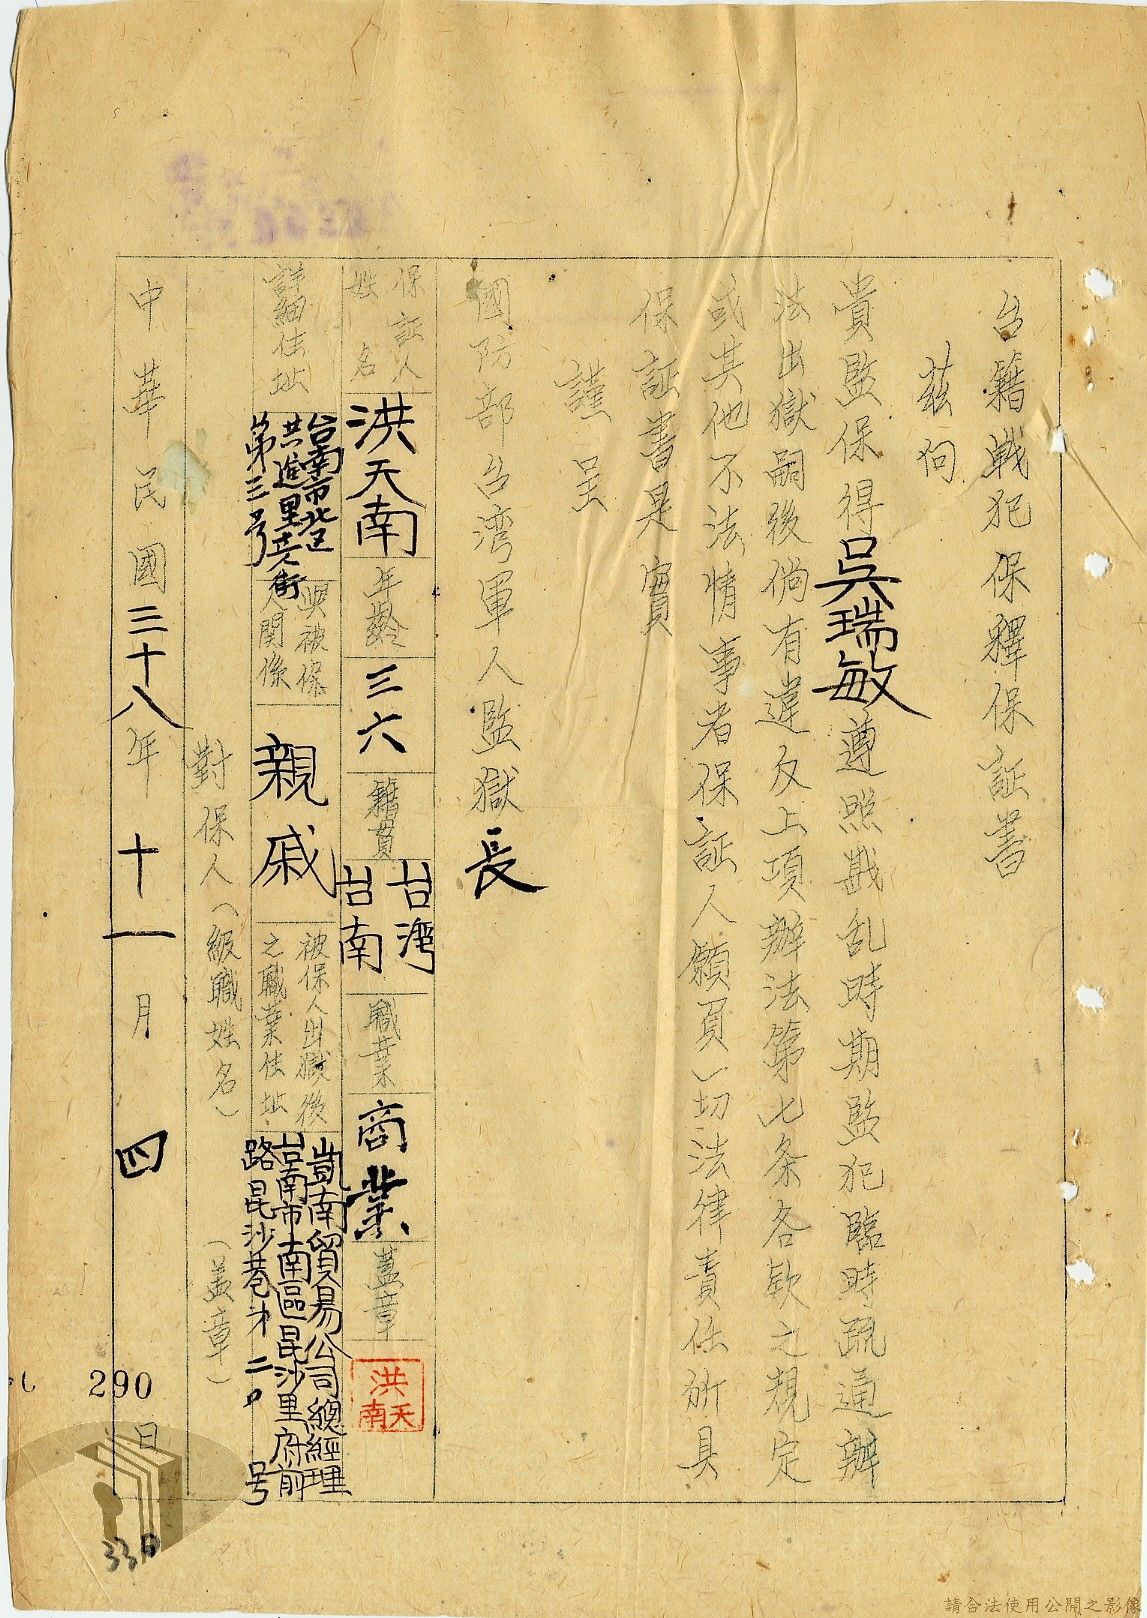 台籍戦犯保釋保証書
茲向
貴監保得吳瑞敏遵照戡乱時期監犯臨時疏通辦
法出獄嗣後倘有違反上項辦法第七条各欵之規定
或其他不法情事者保証人願負一切法律責任所具
保証書是實
謹呈
國防部台湾軍人監獄長
保証人
姓名
洪天南
年齡
三六
籍貫
台湾
台南
職業
商業
蓋章
洪天南
詳細住址
台南市北区
共進里
第三号
與被保
人關係
親戚
被保人出獄後
之職業住址
凱南貿易公司總經理
台南市南區昆沙里府前
路昆沙巷才二〇号
對保人(級職姓名)
(蓋章)
中華民國三十八年十一月四日
290
330
請合法使用公開之影像